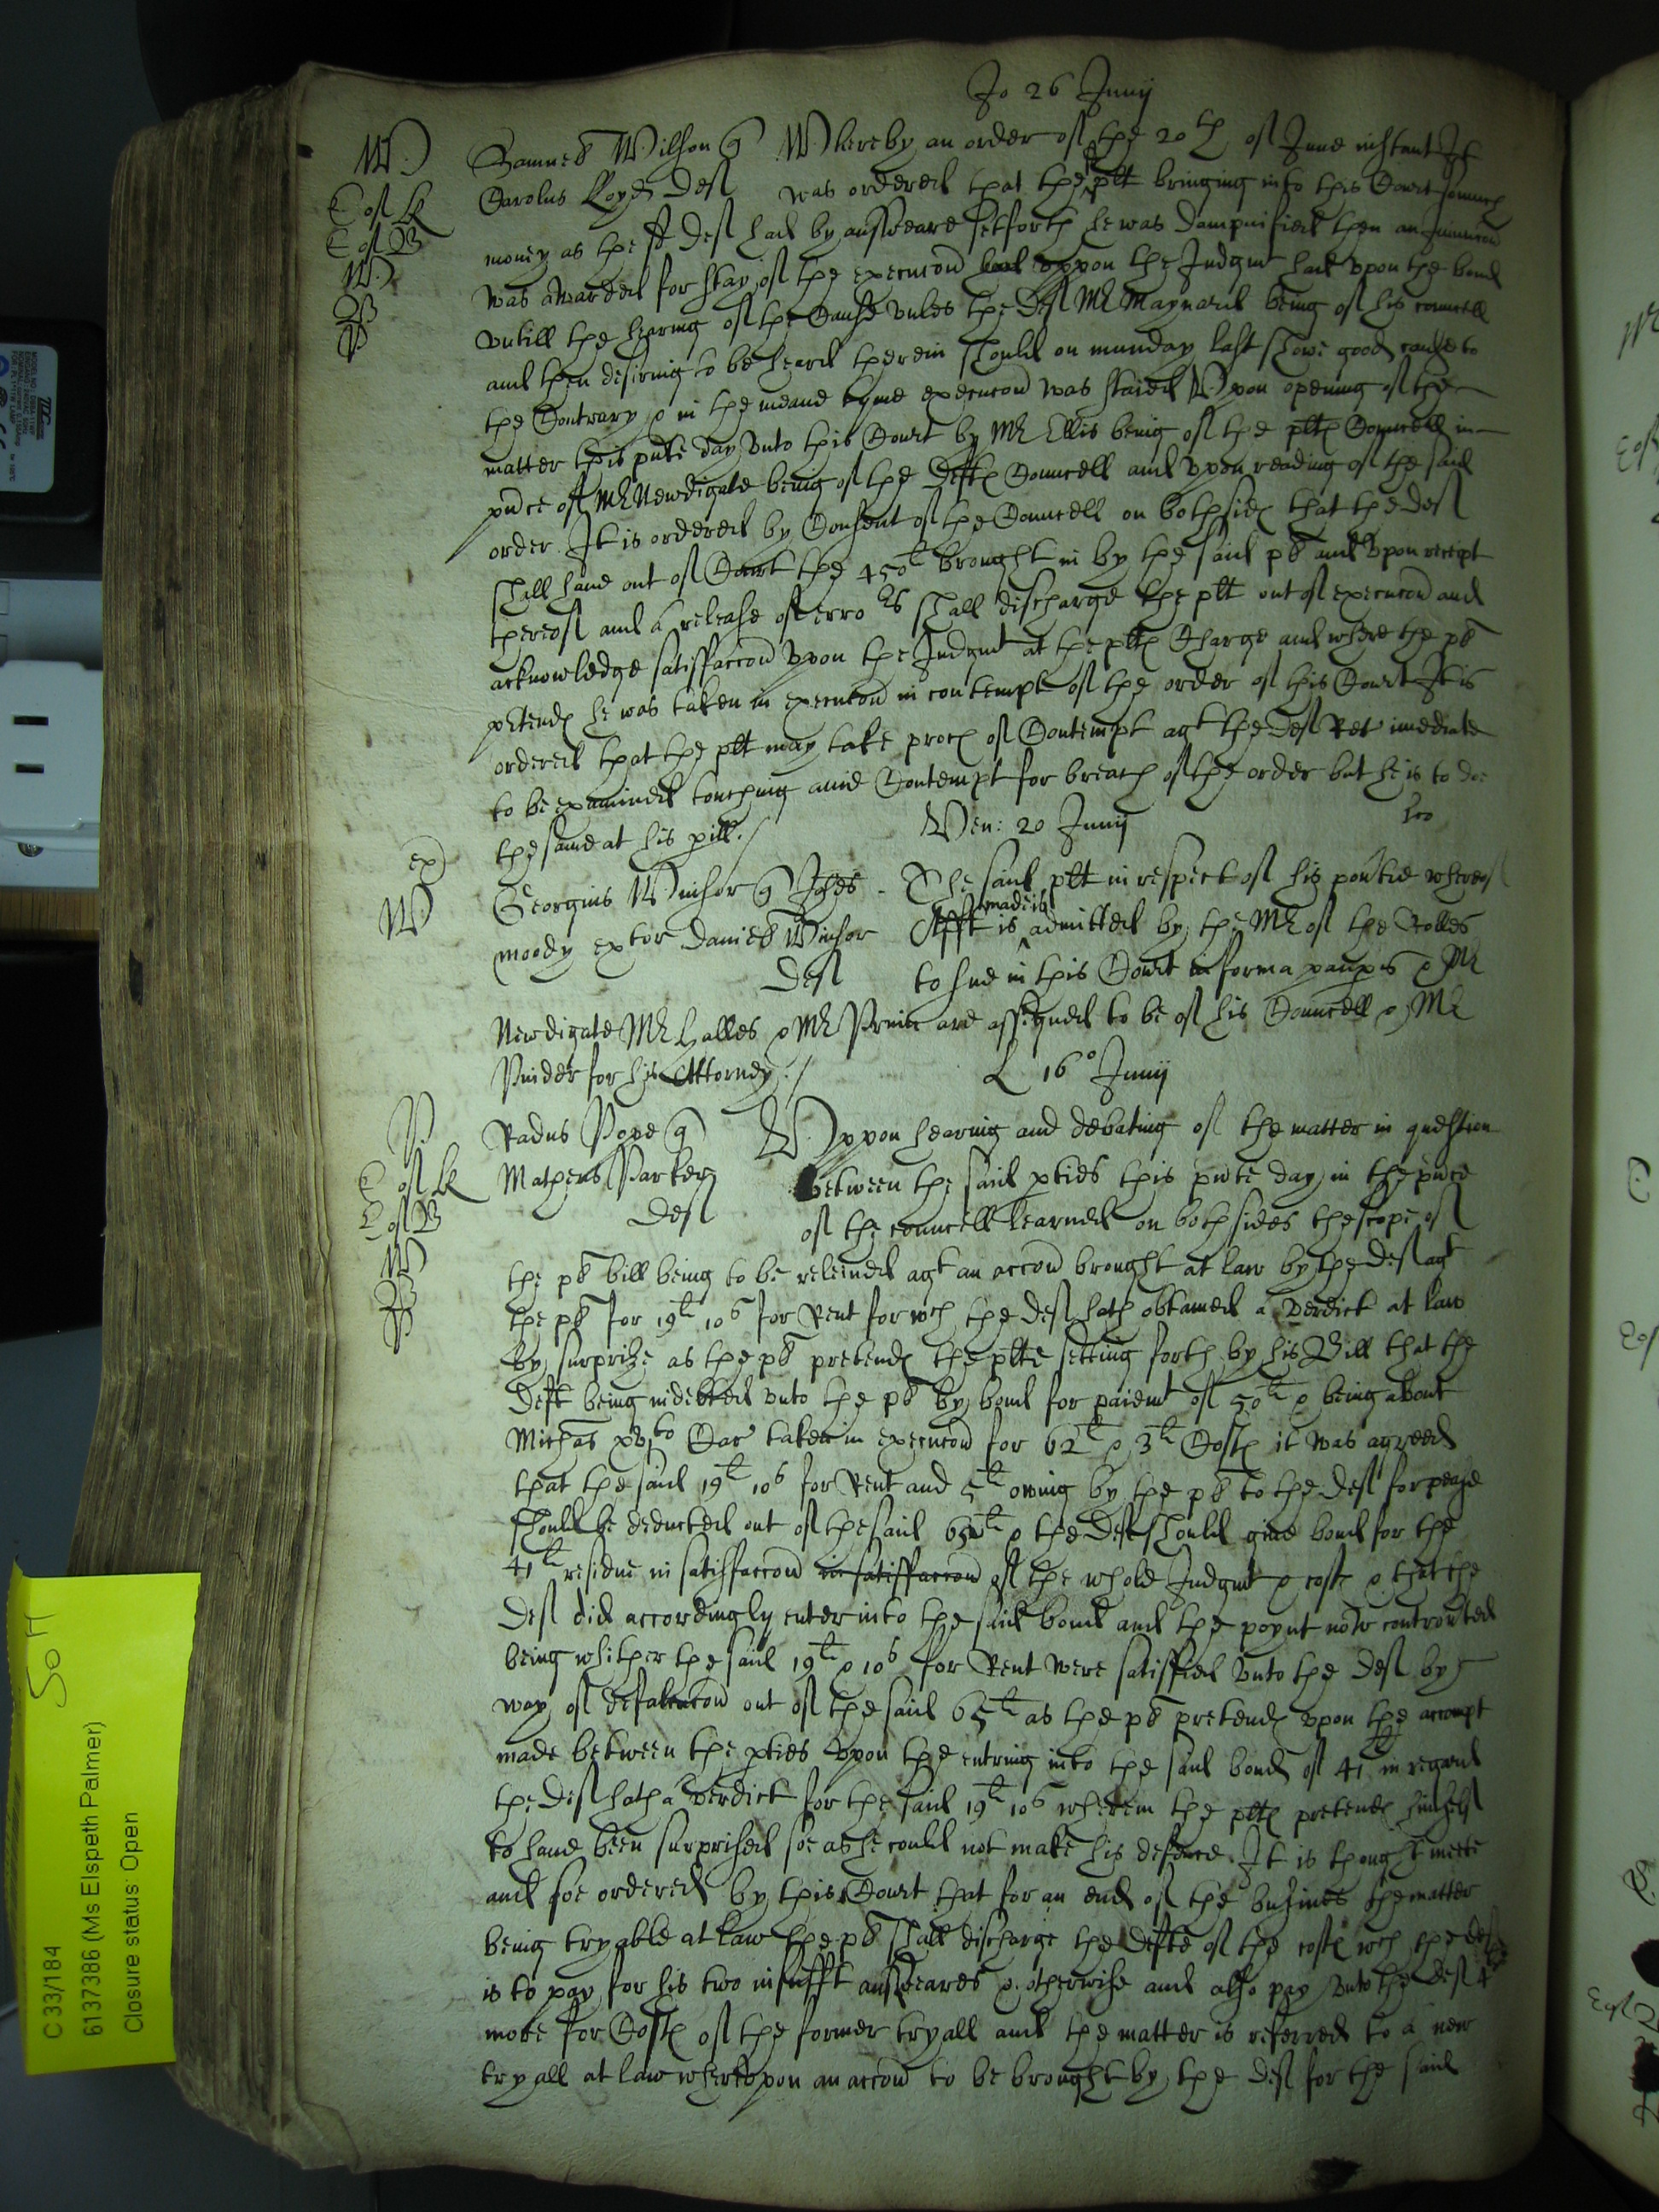 Jo 26 Junij
W
Samuel Wilson q Whereby an order of the 20th of June instant It
E of LK
Carolus Lloyd Def was ordered that the plt bringing into this Court somuch
E of B
money as the sd Def had by answeare setforth he was dampnified then an Iniuncon
W
was awarded for stay of the execucon had uppon the Judgmt had vpon the bond
B
P
vntill the hearing of the Cause vnles the Def Mr Maynard being of his councell
and then desiring to be heard therein should on munday last showe good cause to
the Contrary & in the meane tyme execucon was staied Vpon opening of the
matter this pnte day vnto this Court by Mr Ellis being of the plts Councell in
pnce of Mr Newdigate being of the Defts Councell and vpon reading of the said
order It is ordered by Consent of the Councell on both sides that the Def
shall haue out of Court the 450li brought in by the said pl and vpon receipt
thereof and a release of errors shall discharge the plt out of execucon and
acknowledge satisfaccon vpon the Judgmt at the plts Charge and where the pl
ptends he was taken in execucon in contempt of the order of this Court It is
ordered that the plt may take proces of Contempt agt the Def Ret imediate
to be examined touching anie Contempt for breach of the order but he is to doe
the same at his pill./
Ven: 20 Junij
ex
W
Georgius Winsor q Johes The said plt in respect of his pouertie whereof
moody extor Daniel Winsor Afft is made is admitted by the Mr of the Rolles
Def to sue in this Court in forma paupis & Mr
Newdigate Mr Halles & Mr Prince are assigned to be of his Councell & Mr
Pinder for his Attorney./
L 16o Junij
P
Radus Pope q Vppon hearing and debating of the matter in question
E of LK
Matheus Parker between the said pties this pnte day in the pnce
E of B
Def of the councell learned on both sides the scope of
W
the pl bill being to be releiued agt an accon brought at law by the Def agt
B
P
the pl for 19li 10s for Rent for wch the Def hath obtained a verdict at law
by surprize as the pl pretends the plte setting forth by his Bill that the
Deft being indebted vnto the pl by bond for paiemt of 50li & being about
Michas xvto Car taken in execucon for 62li & 3li Costs it was agreed
that the said 19li 10s for Rent and 5li owing by the pl to the Def for pease
should be deducted out of the said 65li & the Deft should giue bond for the
41li residue in satisfaccon in satisfaccon of the whole Judgmt & costs & that the
Def did accordingly enter into the said bond and the poynt now controuted
being whither the said 19li & 10s for Rent were satisfied vnto the Def by
way of defalcacon out of the said 65li as the pl pretends vpon the accompt
made between the pties vpon the entring into the said bond of 41li in regard
the Def hath a verdict for the said 19li 10s wherein the plts pretends himself
to haue been surprised soe as he could not make his defence. It is thought meete
and soe ordered by this Court that for an end of the busines the matter
being tryable at law the pl shall discharge the Defte of the costs wch the def
is to pay for his two insufft answeares & otherwise and also pay vnto the Def 4li
more for Costs of the former tryall and the matter is referred to a new
tryall at law wherevpon an accon to be brought by the Def for the said
C 33/184
6137386 (Ms Elspeth Palmer)
Closure status: Open